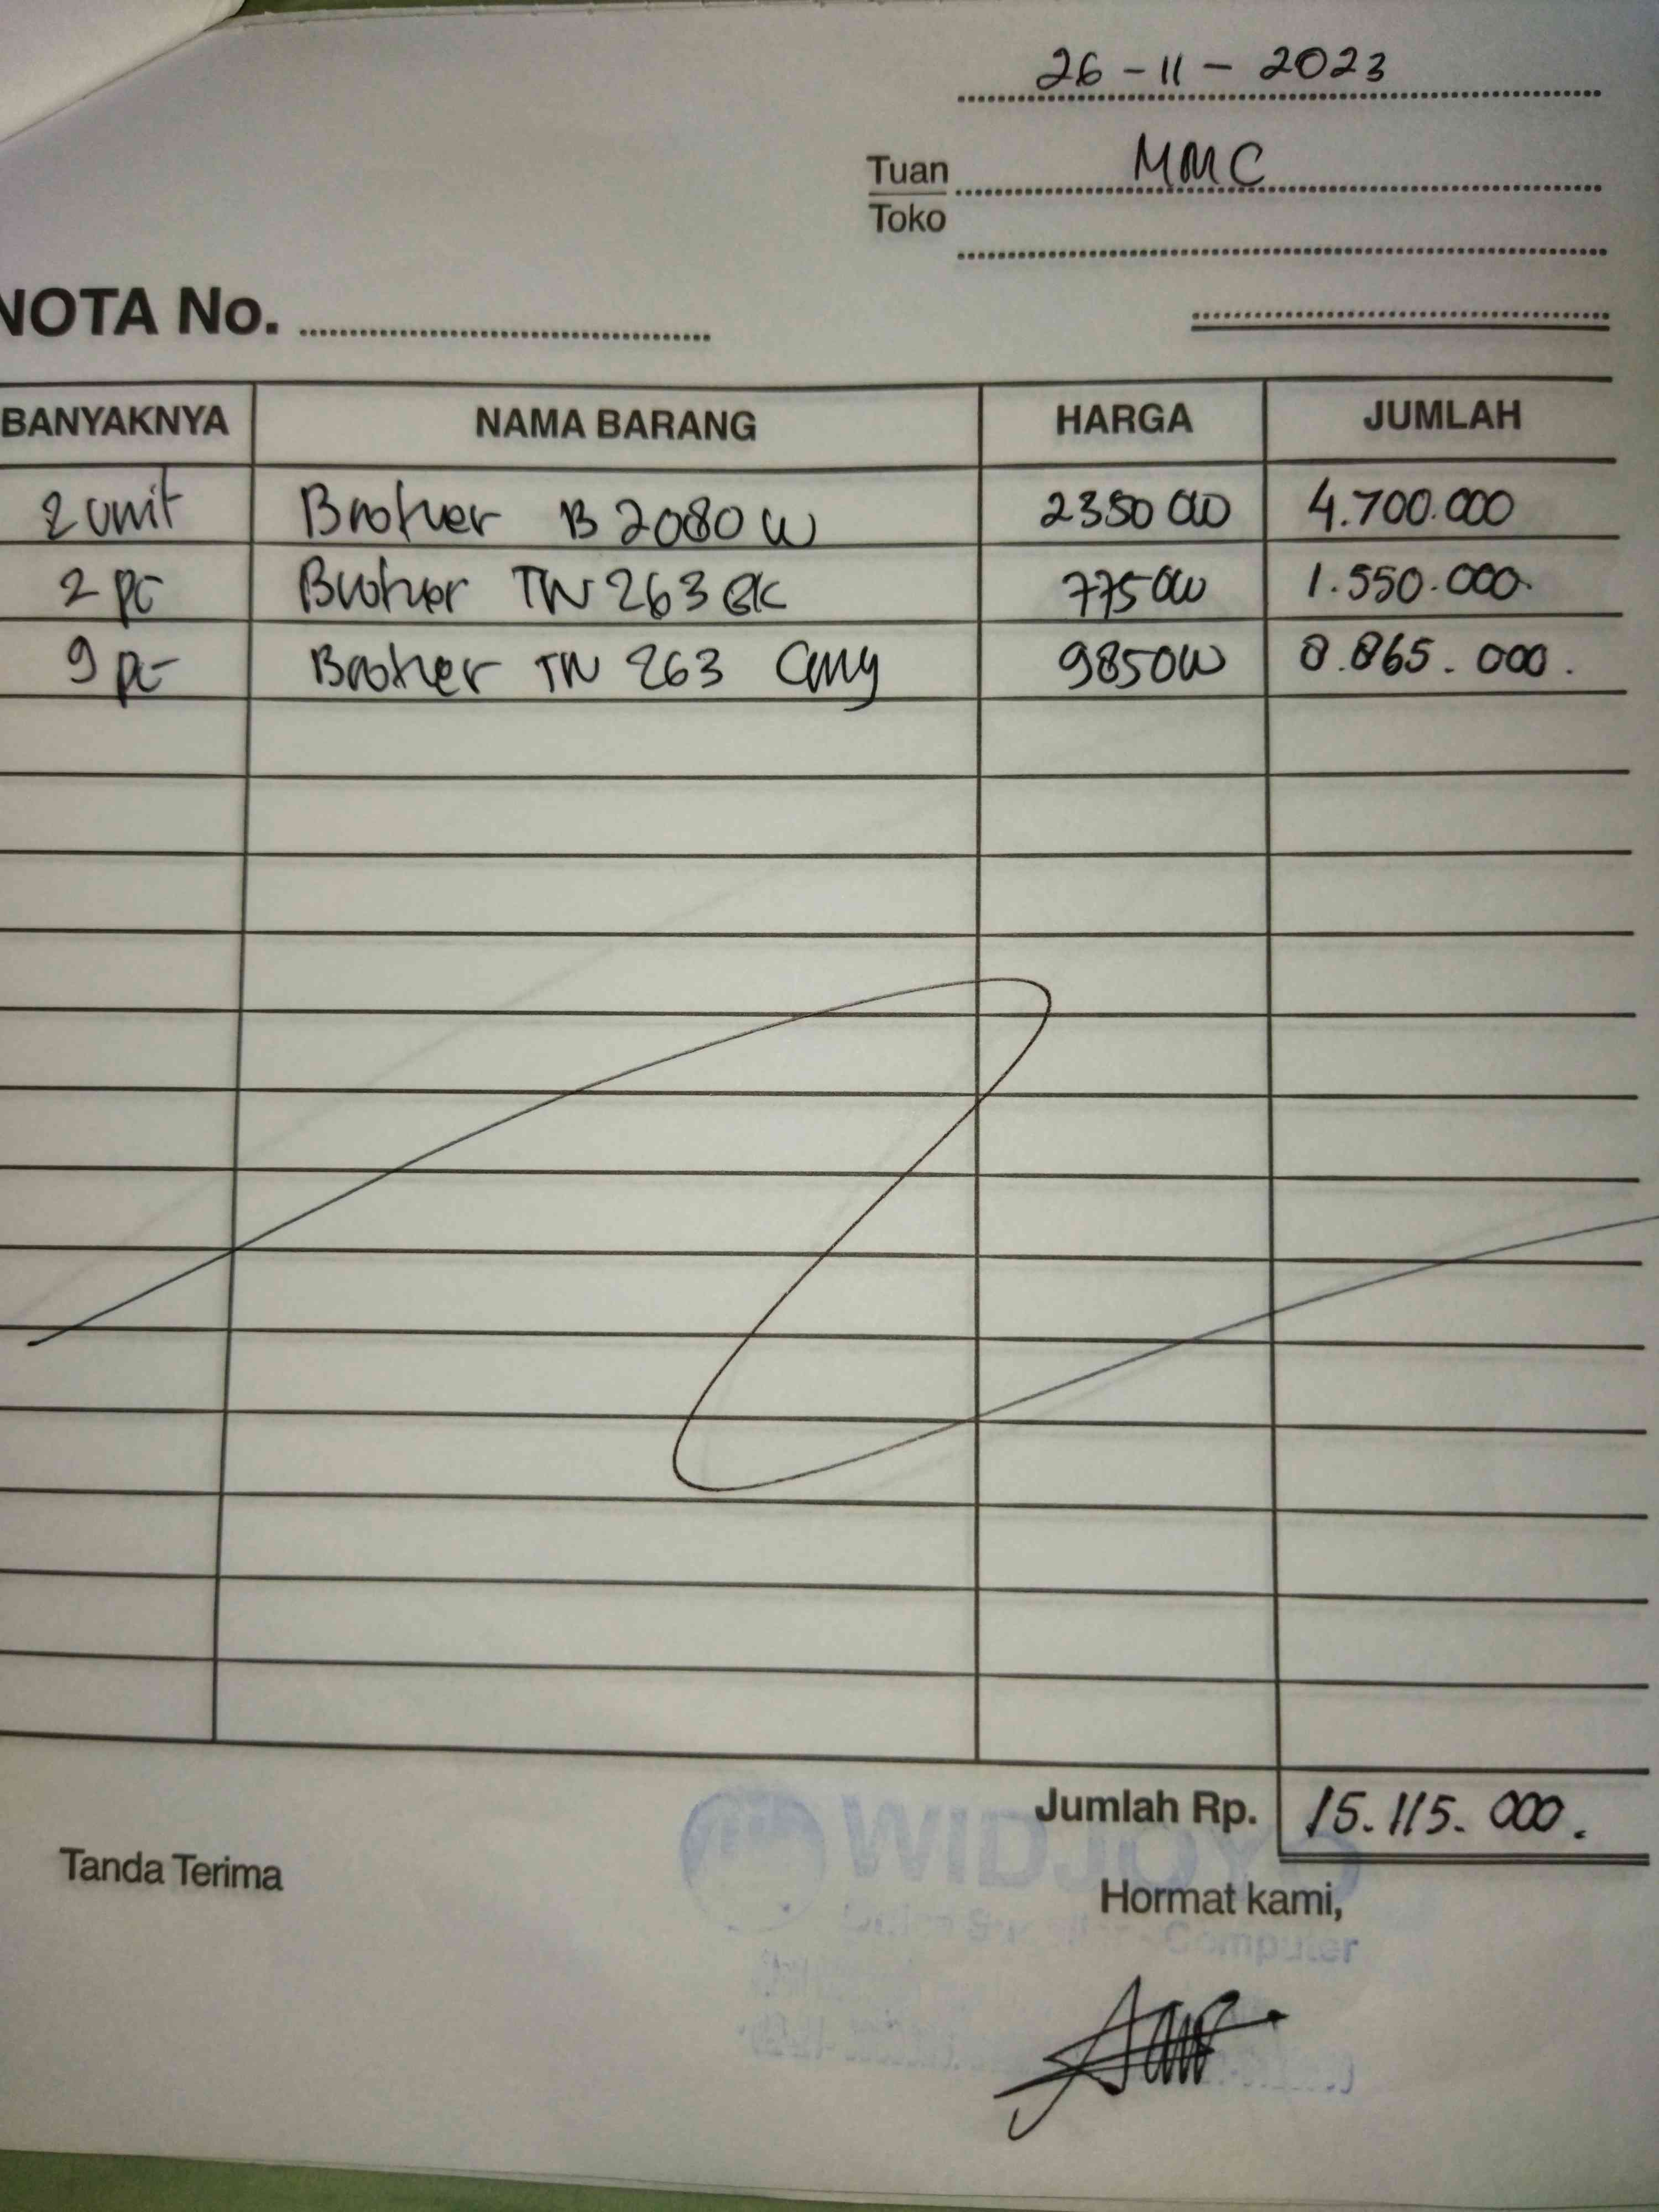 26 - 11 - 2023
Tuan MMC
Toko
NOTA No.
BANYAKNYA NAMA BARANG HARGA JUMLAH
2 unit Brother B 2080 W 2350 000 4.700.000
2 pc Brother TN 263 BK 775 000 1.550.000
9 pc Brother TN 263 Cmy 985000 8.865.000.
Jumlah Rp. 15.115.000.
Tanda Terima
WIDJOYO
Hormat kami,
Computer